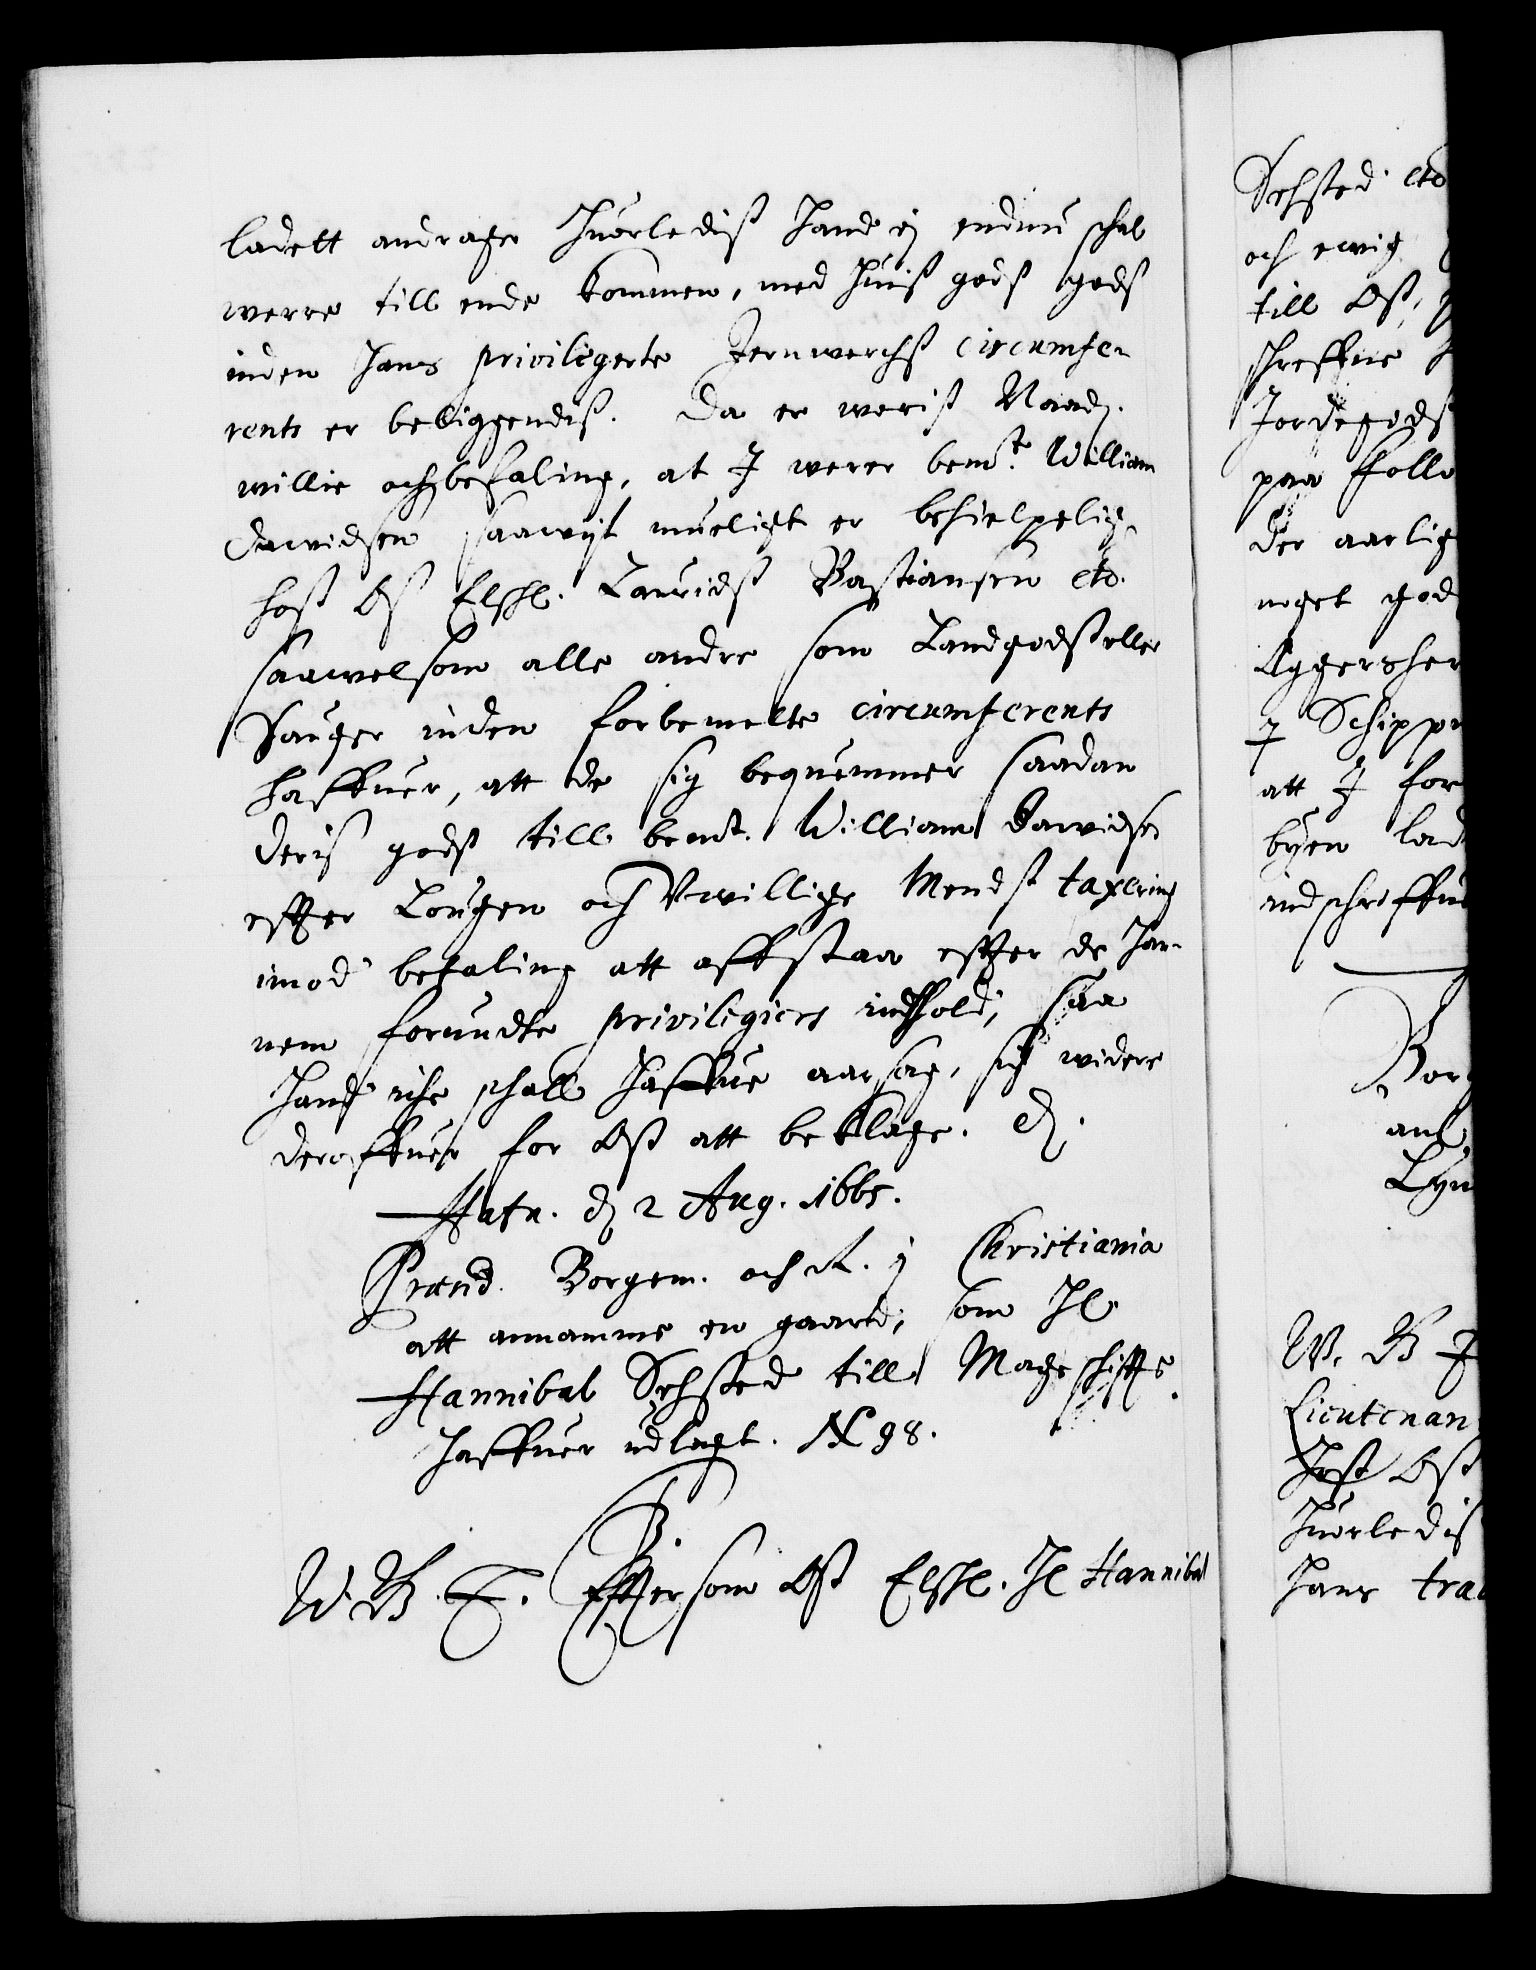 ladett andrage Huorlediß Hand ej endnu schal
werre till ende kommen, med huiß godß godß
inden Hans privilegerte Jernwerchß circumfe-
rents er beliggendiß. Da er woriß Naad.
willie och befaling, at I werer bemt. William
Dawidsen saawijt mueligt er behielpelig,
hoß Oß Elshl. Lauridß Bastiansen etc.
saawelsom alle andre som Landgodß eller
Schauger inden forbemelte circumferents
haffuer, att de sig bequemmer saadan
deris godß till bemt. William Dawidsen
effter Lougen och Uwillige Mendß taxering
imod betaling att affstaa effter de Han-
nem forundte privilegiers indhold, saa
Hand iche schall haffue aarsag, sig widere
deroffuer for Oß att beklage. etc.
Hafn. d. 2 Aug. 1665.
Præsid. Borgem. och R. i Christiania
att annamme en gaard, som Hr.
Hannibal Sehsted till Mageschiffte
haffuer udlagt. N 98.
W. B. F. Efftersom Oß Elshl. Hr Hannibal
Sehsted etc
och ewig
till Oß,
schreffne
Jordegodß
paa Follo
der aarlig
noget god
Aggersher
7 Schippu
att I for
byen lad
indschreffue
Borg
anl
Lyn
W. B. F
Lieutenan
Hoß Oß
Huorledis
Hans tra